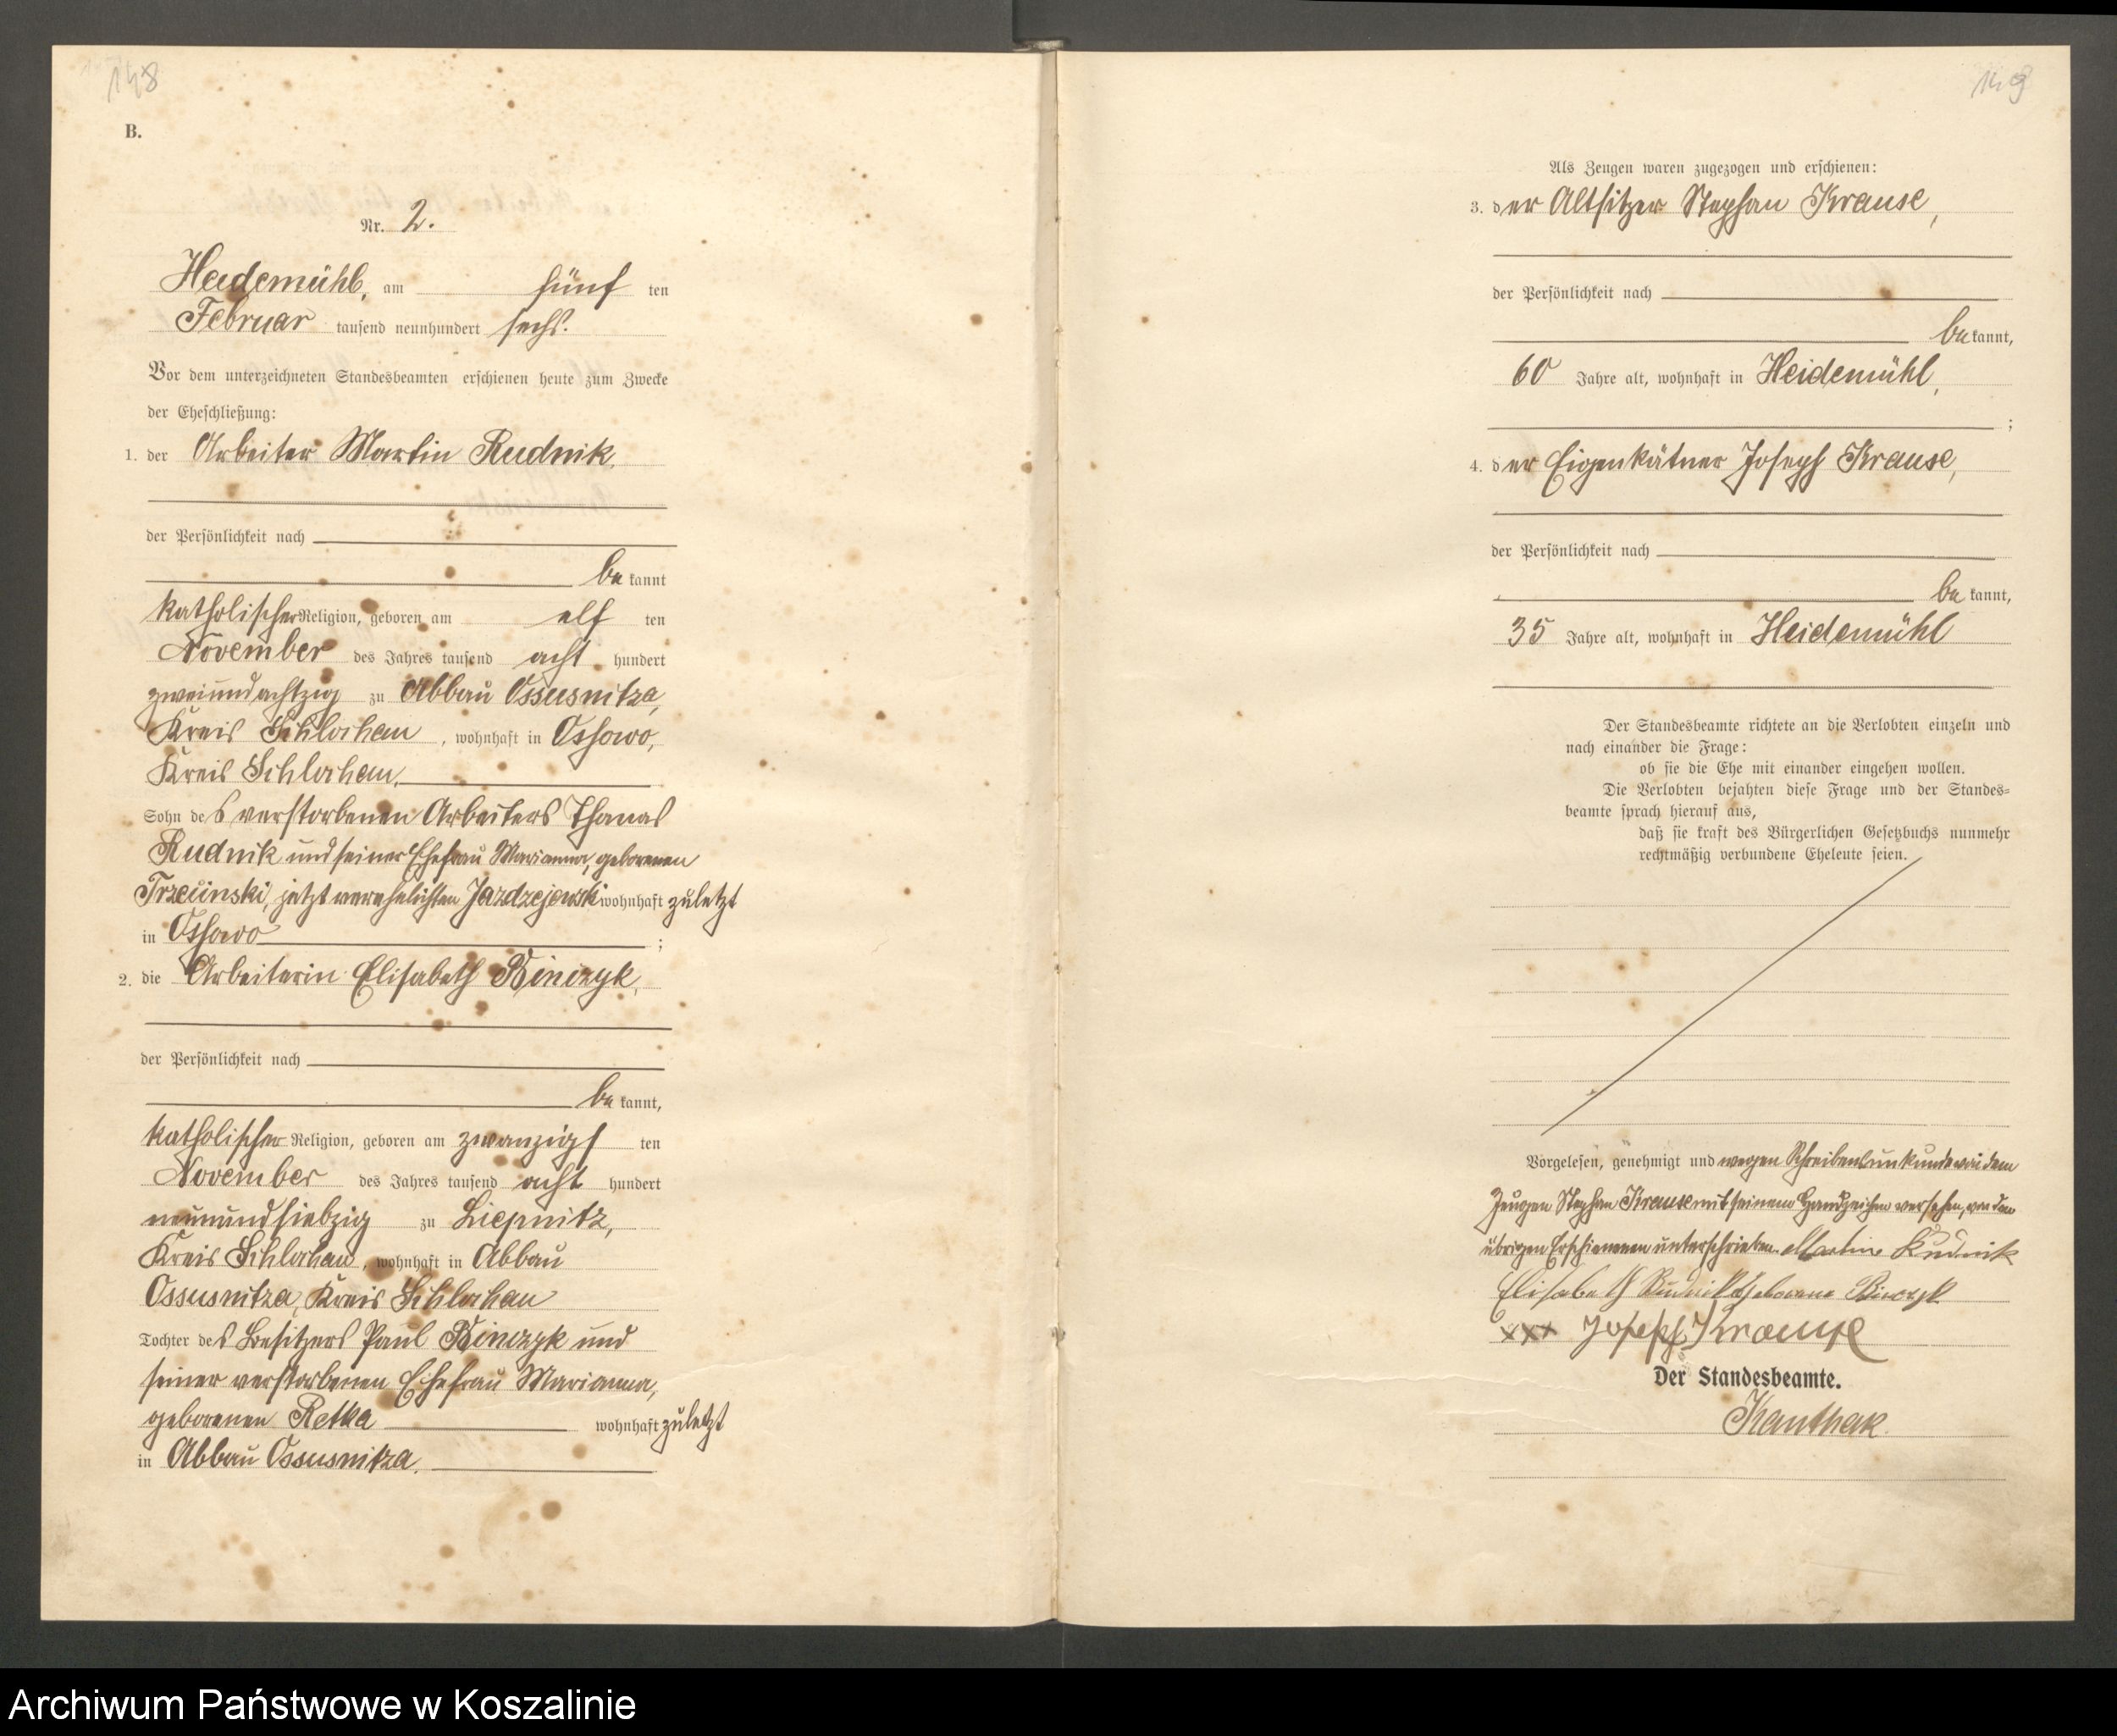 148
B.
Nr. 2.
Heidemühl, am fünf ten
Februar tausend neunhundert sechs.
Vor dem unterzeichneten Standesbeamten erschienen heute zum Zwecke
der Eheschließung:
1. der Arbeiter Martin Rudnik,
der Persönlichkeit nach
be kannt
katholischer Religion, geboren am elf ten
November des Jahres tausend acht hundert
zweiundachtzig zu Abbau Ossusnitza,
Kreis Schlochau, wohnhaft in Ossowo,
Kreis Schlochau,
Sohn des verstorbenen Arbeiters Thomas
Rudnik und seiner Ehefrau Marianna, geborenen
jetzt verehelichten Jazdzejewski wohnhaft zuletzt
in Ossowo ;
2. die Arbeiterin Elisabeth Binczyk,
der Persönlichkeit nach
be kannt,
katholischer Religion, geboren am zwanzigs ten
November des Jahres tausend acht hundert
neunundsiebzig zu Liepnitz,
Kreis Schlochau, wohnhaft in Abbau
Ossusnitza, Kreis Schlochau
Tochter des Besitzers Paul Binczyk und
seiner verstorbenen Ehefrau Marianna,
geborenen Retka wohnhaft zuletzt
in Abbau Ossusnitza.
149
Als Zeugen waren zugezogen und erschienen:
3. der Altsitzer Stephan Krause,
der Persönlichkeit nach
be kannt,
60 Jahre alt, wohnhaft in Heidemühl,
;
4. der Eigenkätner Joseph Krause,
der Persönlichkeit nach
be kannt,
35 Jahre alt, wohnhaft in Heidemühl
Der Standesbeamte richtete an die Verlobten einzeln und
nach einander die Frage:
ob sie die Ehe mit einander eingehen wollen.
Die Verlobten bejahten diese Frage und der Standes=
beamte sprach hierauf aus,
daß sie kraft des Bürgerlichen Gesetzbuchs nunmehr
rechtmäßig verbundene Eheleute seien.
Vorgelesen, genehmigt und wegen Schreibensunkunde von dem
Zeugen Stephan Krause mit seinem Handzeichen versehen, von den
übrigen Erschienenen unterschrieben. Martin Rudnik
Elisabeth Rudnik geborene Binczyk
xxx Joseph Krause
Der Standesbeamte.
Kanthak.
Archiwum Państwowe w Koszalinie